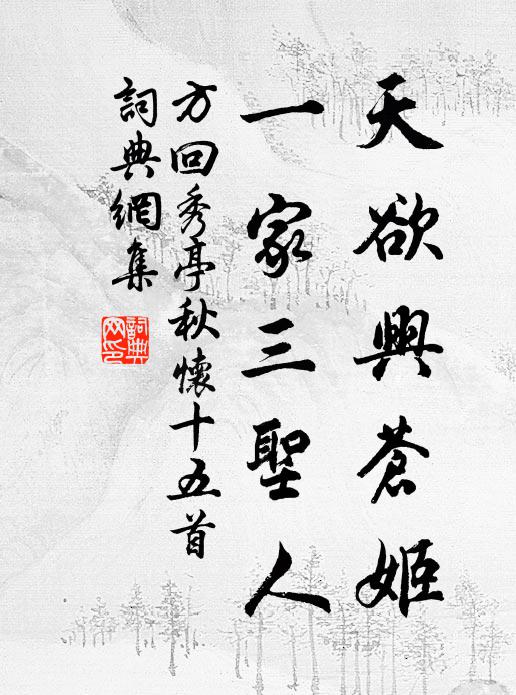 天欲興蒼姬
一家三聖人
方回秀亭秋懷十五首
詞典網集
詞典网印